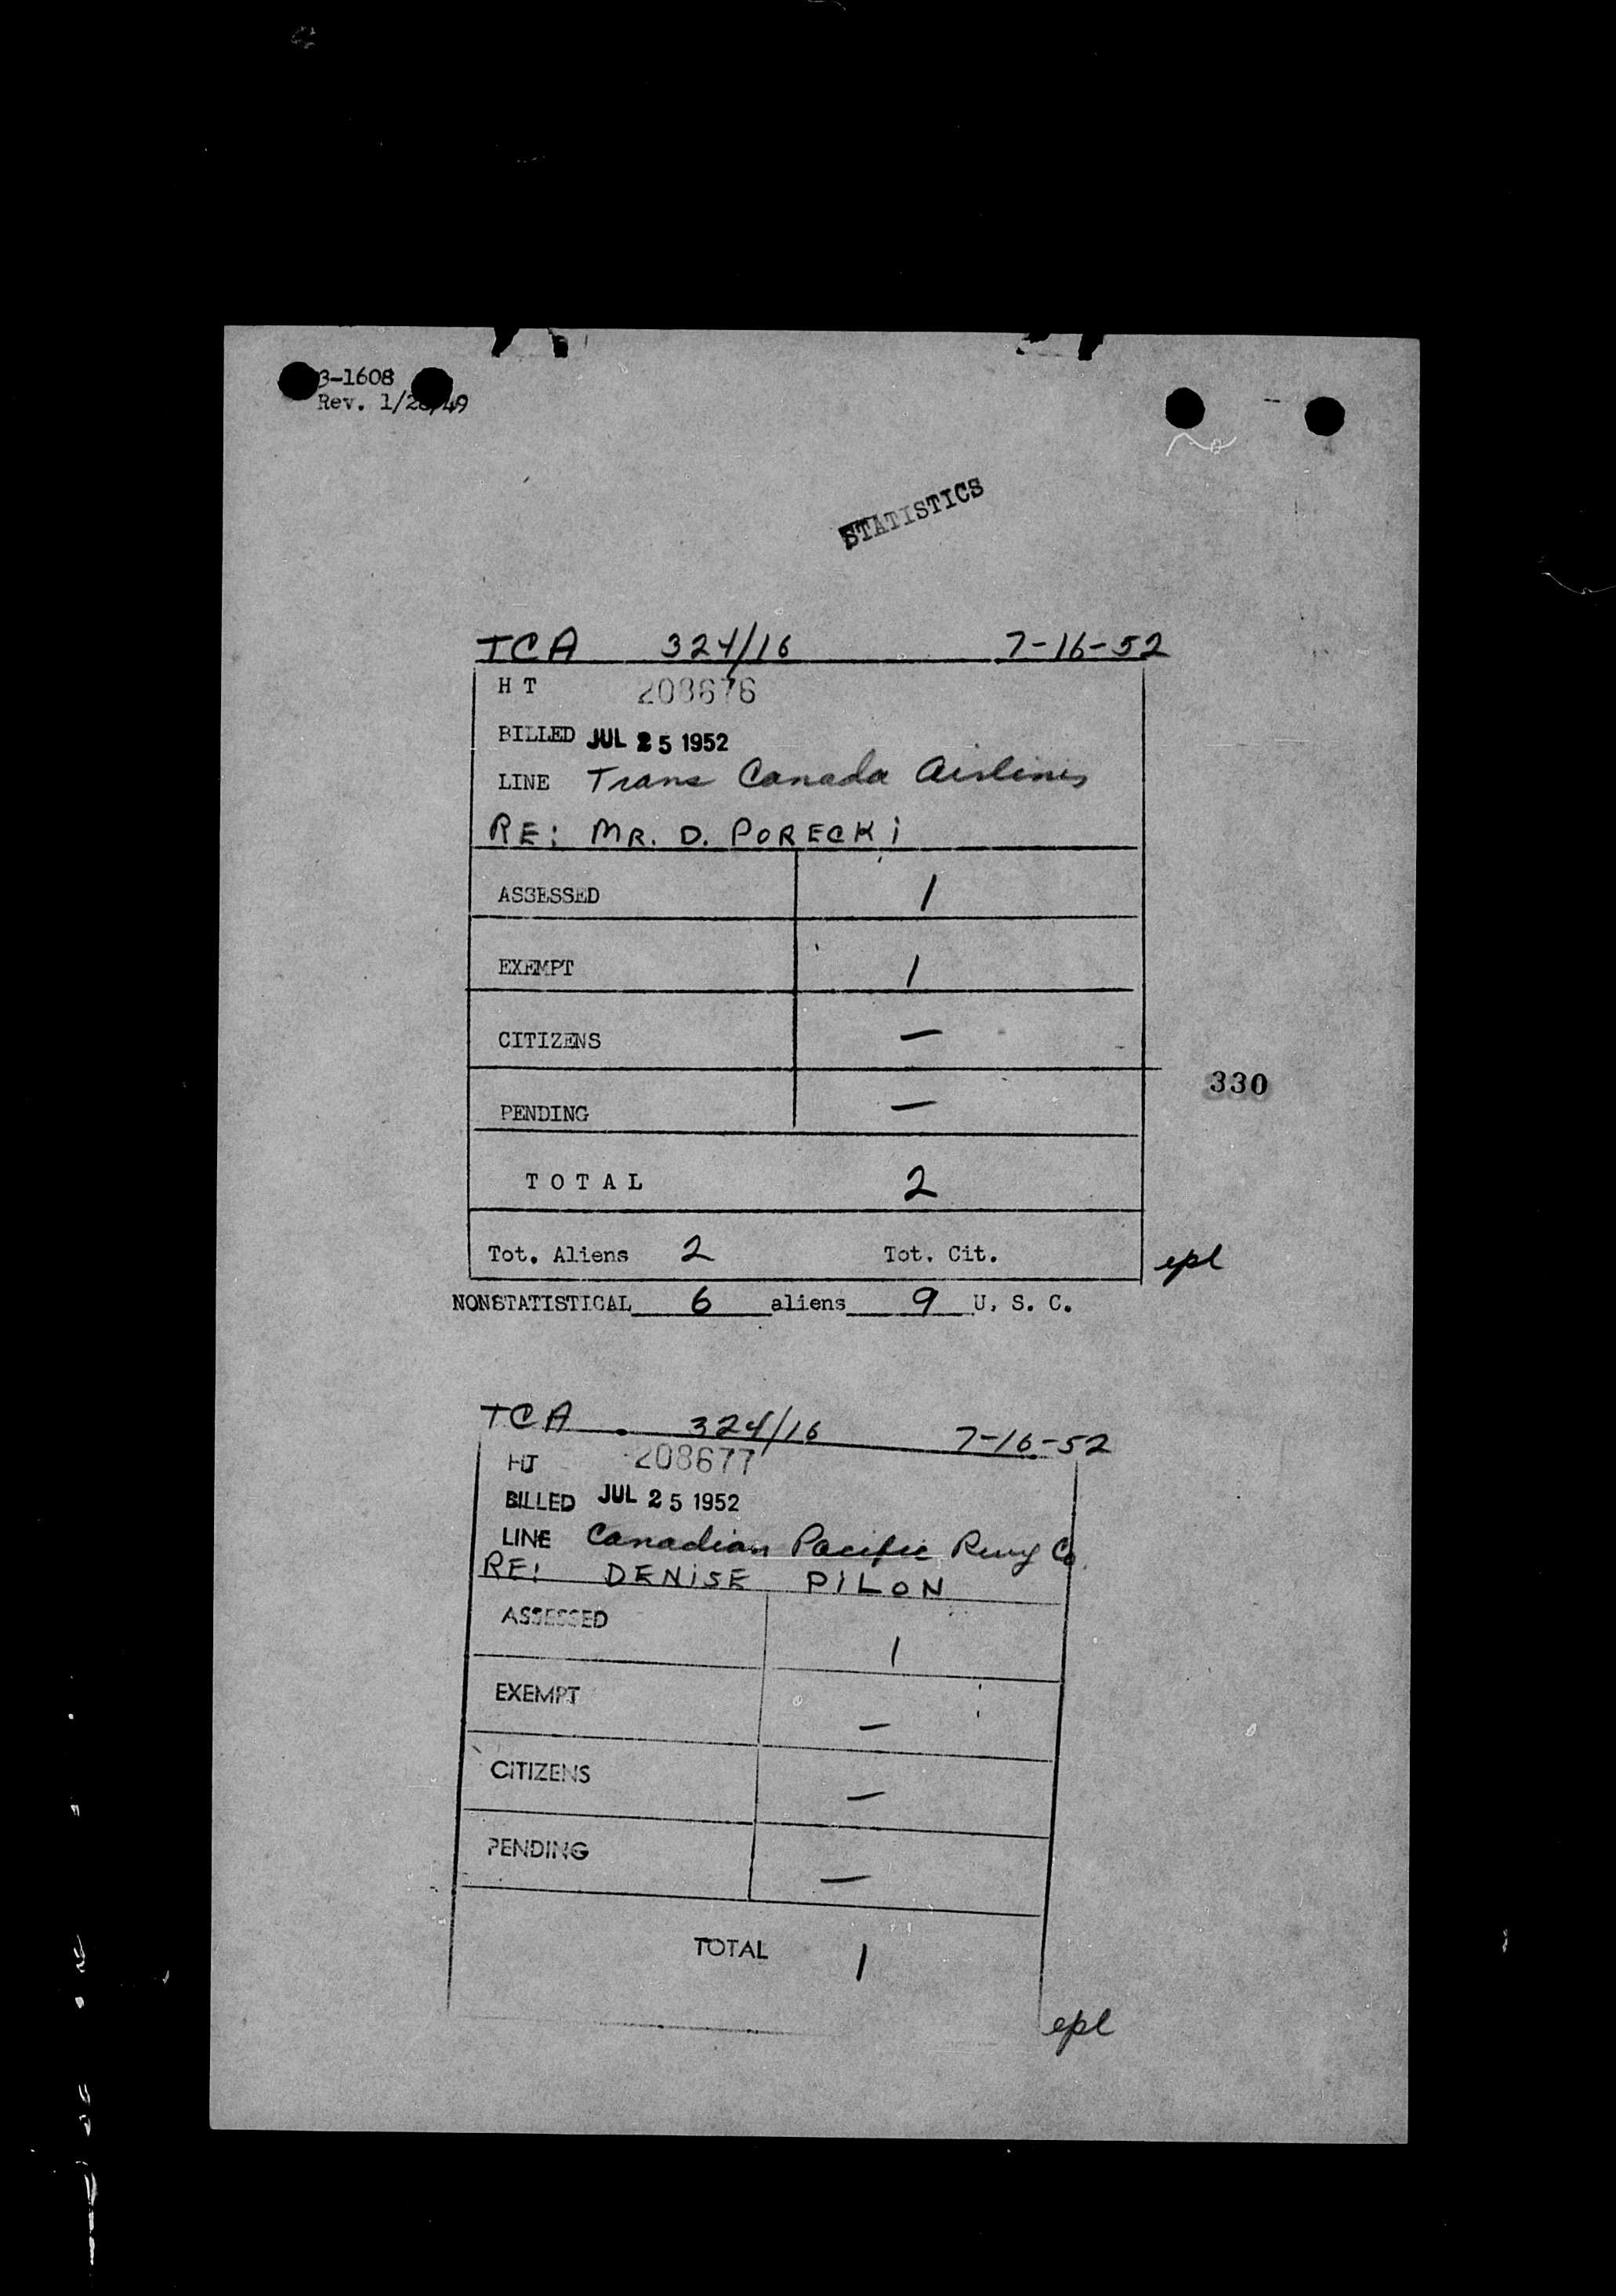 3-1608
Rev. 1/28/49
STATISTICS
TCA 324/16 7-16-52
H T 208676
BILLED JUL 25 1952
LINE Trans Canada Airlines
RE: MR. D. PORECKI
ASSESSED 1
EXEMPT 1
CITIZENS —
330
PENDING —
TOTAL 2
Tot. Aliens 2 Tot. Cit.
epl
NONSTATISTICAL 6 aliens 9 U. S. C.
TCA . 324/16 7-16-52
HT 208677
BILLED JUL 25 1952
LINE Canadian Pacific Rwy Co.
RE: DENISE PILON
ASSESSED 1
EXEMPT —
CITIZENS —
PENDING —
TOTAL 1
epl